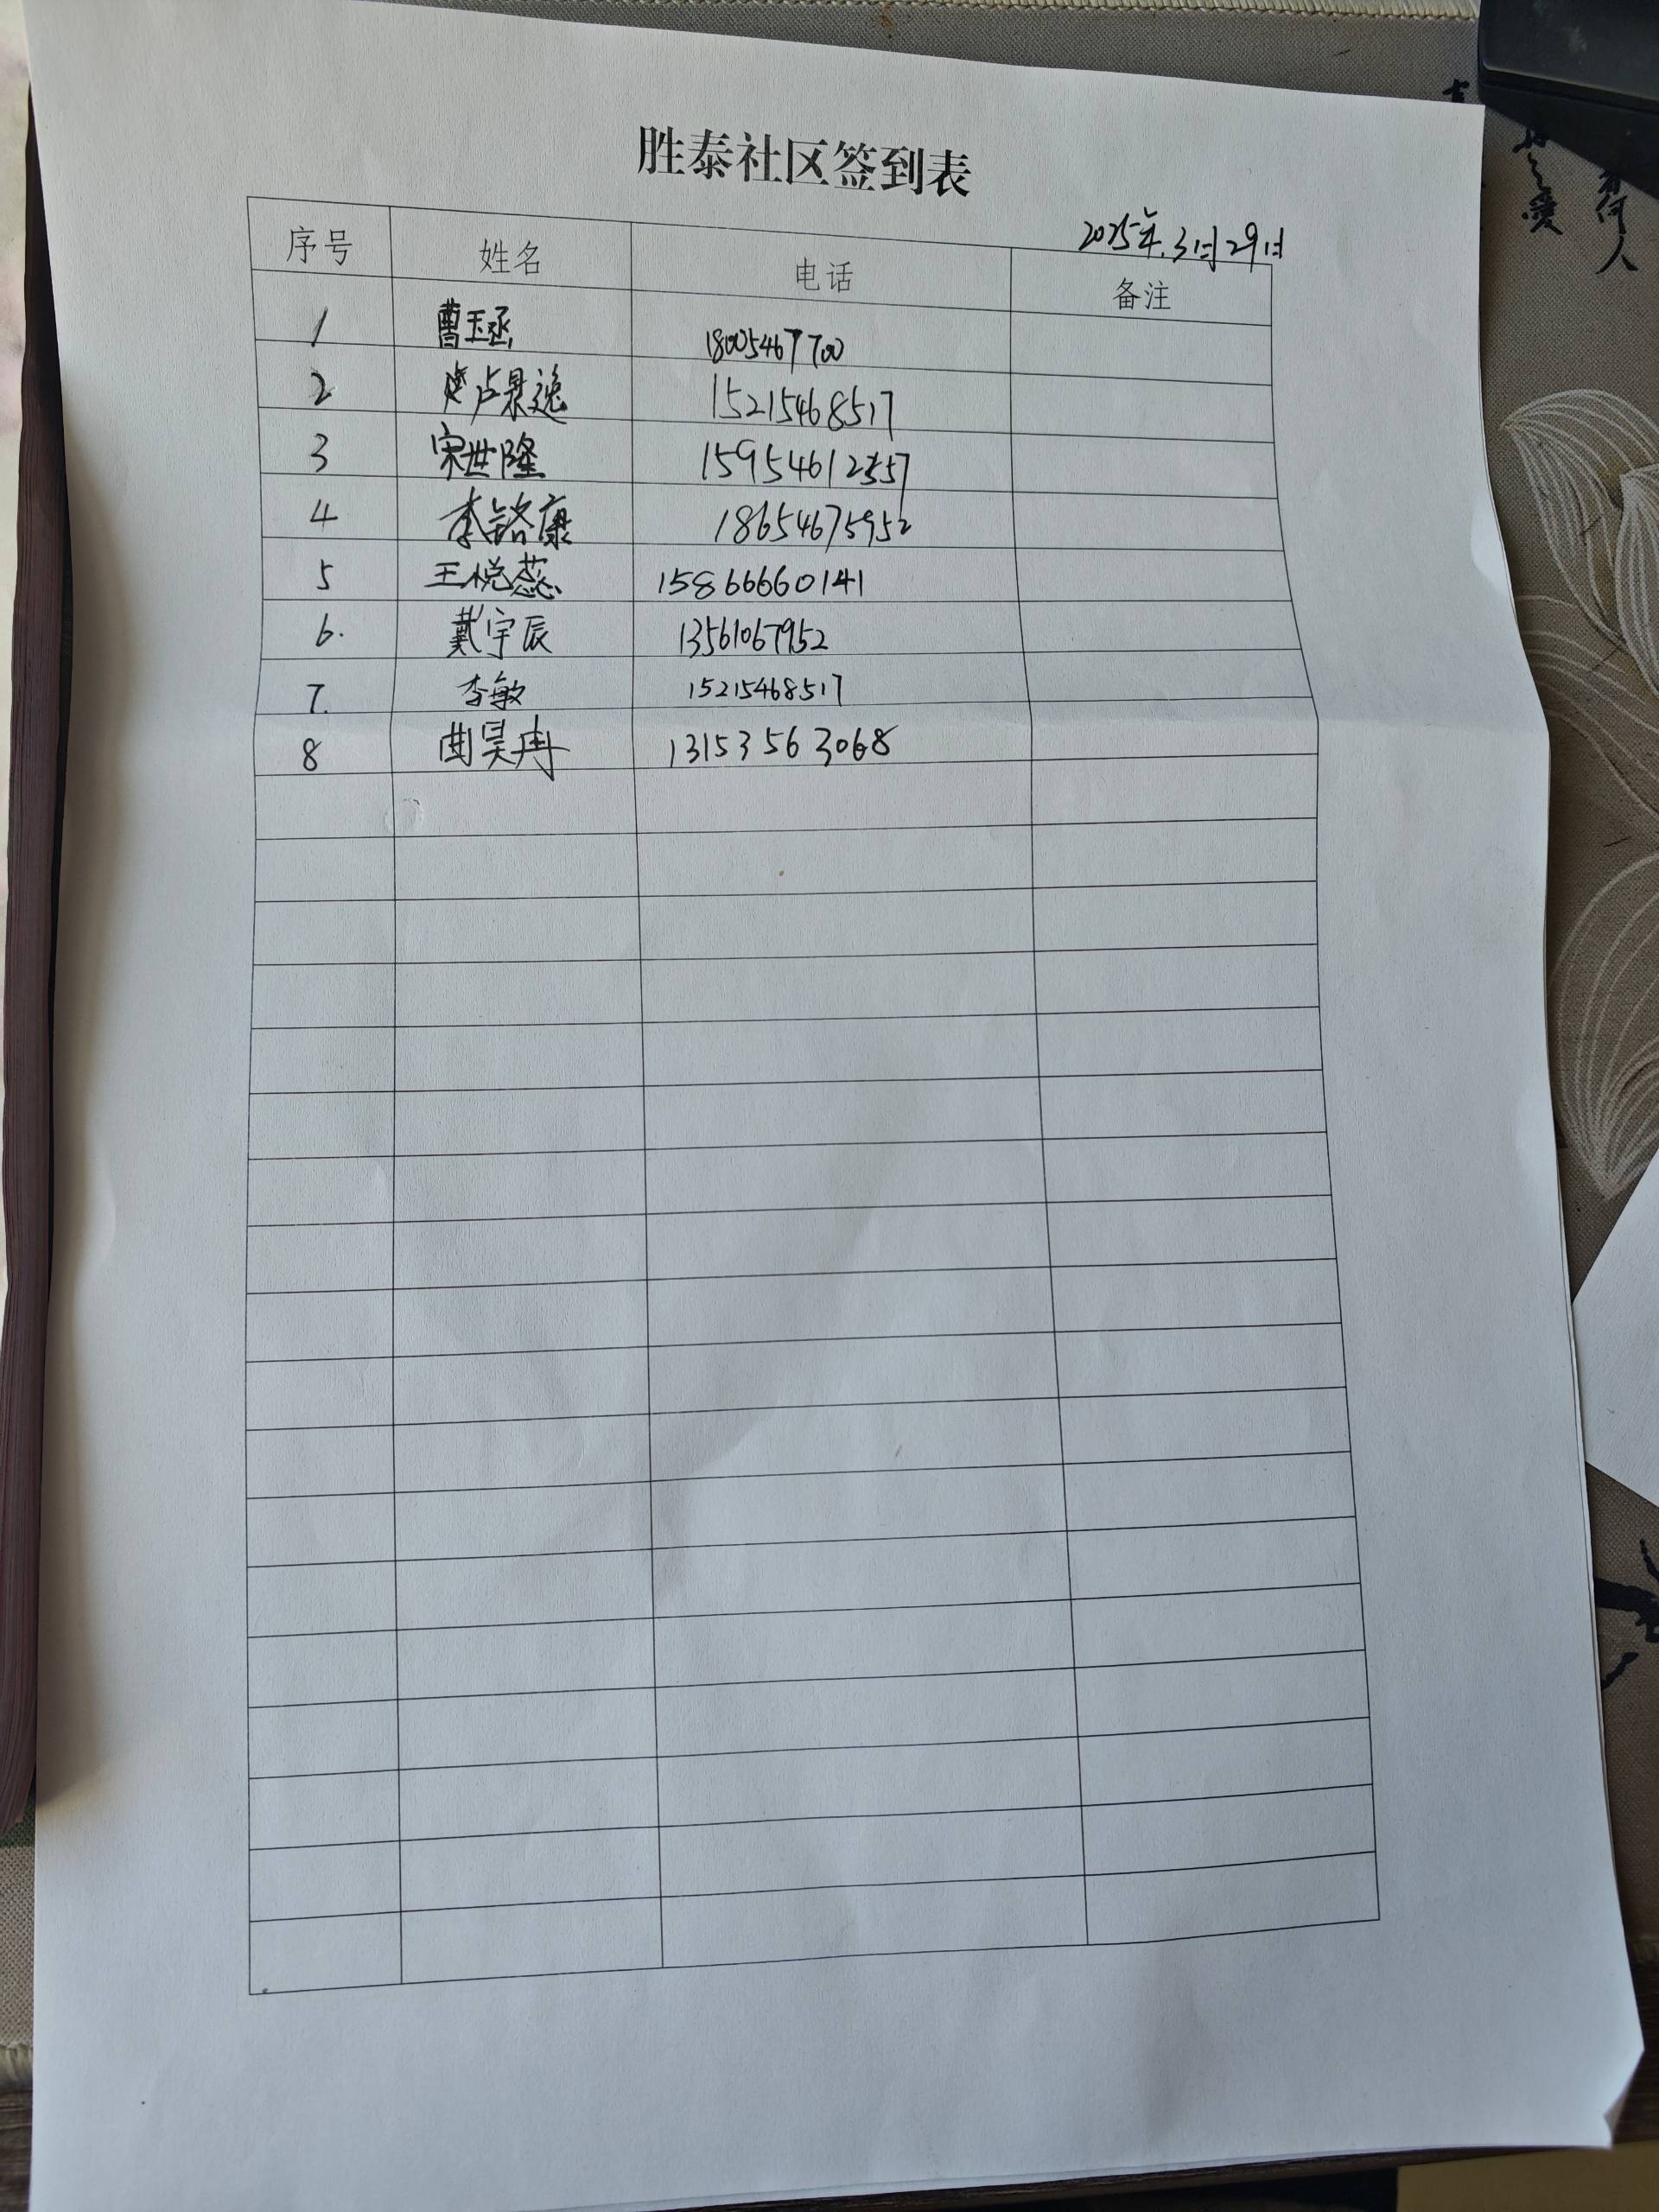 胜泰社区签到表
2025年.3月29日
序号 姓名 电话 备注
1 曹玉丞 18005467700
2 卢景逸 15215468517
3 宋世隆 15954612557
4 李铭康 18654675952
5 王悦蕊 15866660141
6. 戴宇辰 13561067952
7. 李敏 15215468517
8 曲昊冉 13153563068